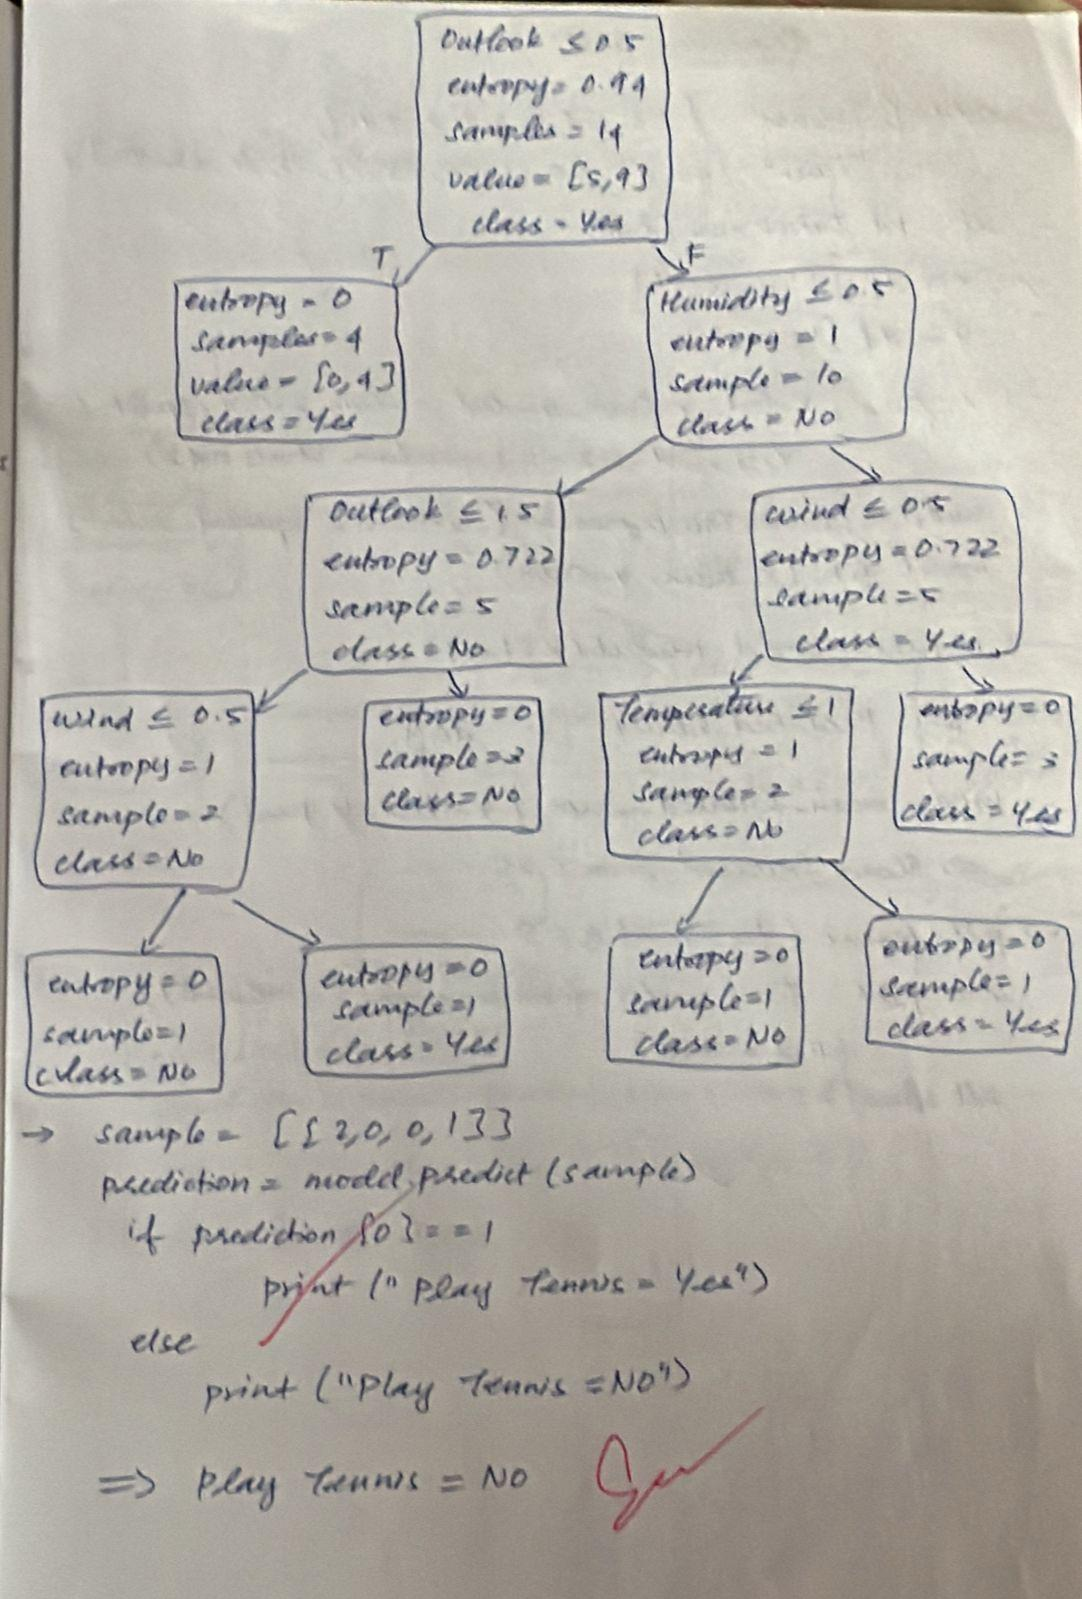 Outlook ≤ 0.5
entropy = 0.94
samples = 14
value = [5,9]
class = Yes
T
F
entropy = 0
samples = 4
value = [0,4]
class = Yes
Humidity ≤ 0.5
entropy = 1
sample = 10
class = No
Outlook ≤ 1.5
entropy = 0.722
sample = 5
class = No
Wind ≤ 0.5
entropy = 0.722
sample = 5
class = Yes
Wind ≤ 0.5
entropy = 1
sample = 2
class = No
entropy = 0
sample = 3
class = No
Temperature ≤ 1
entropy = 1
sample = 2
class = No
entropy = 0
sample = 3
class = Yes
entropy = 0
sample = 1
class = No
entropy = 0
sample = 1
class = Yes
entropy = 0
sample = 1
class = No
entropy = 0
sample = 1
class = Yes
→ sample = [[2,0,0,1]]
prediction = model.predict(sample)
if prediction [0] == 1
print (" Play Tennis = Yes")
else
print ("Play Tennis = NO")
⇒ Play Tennis = NO